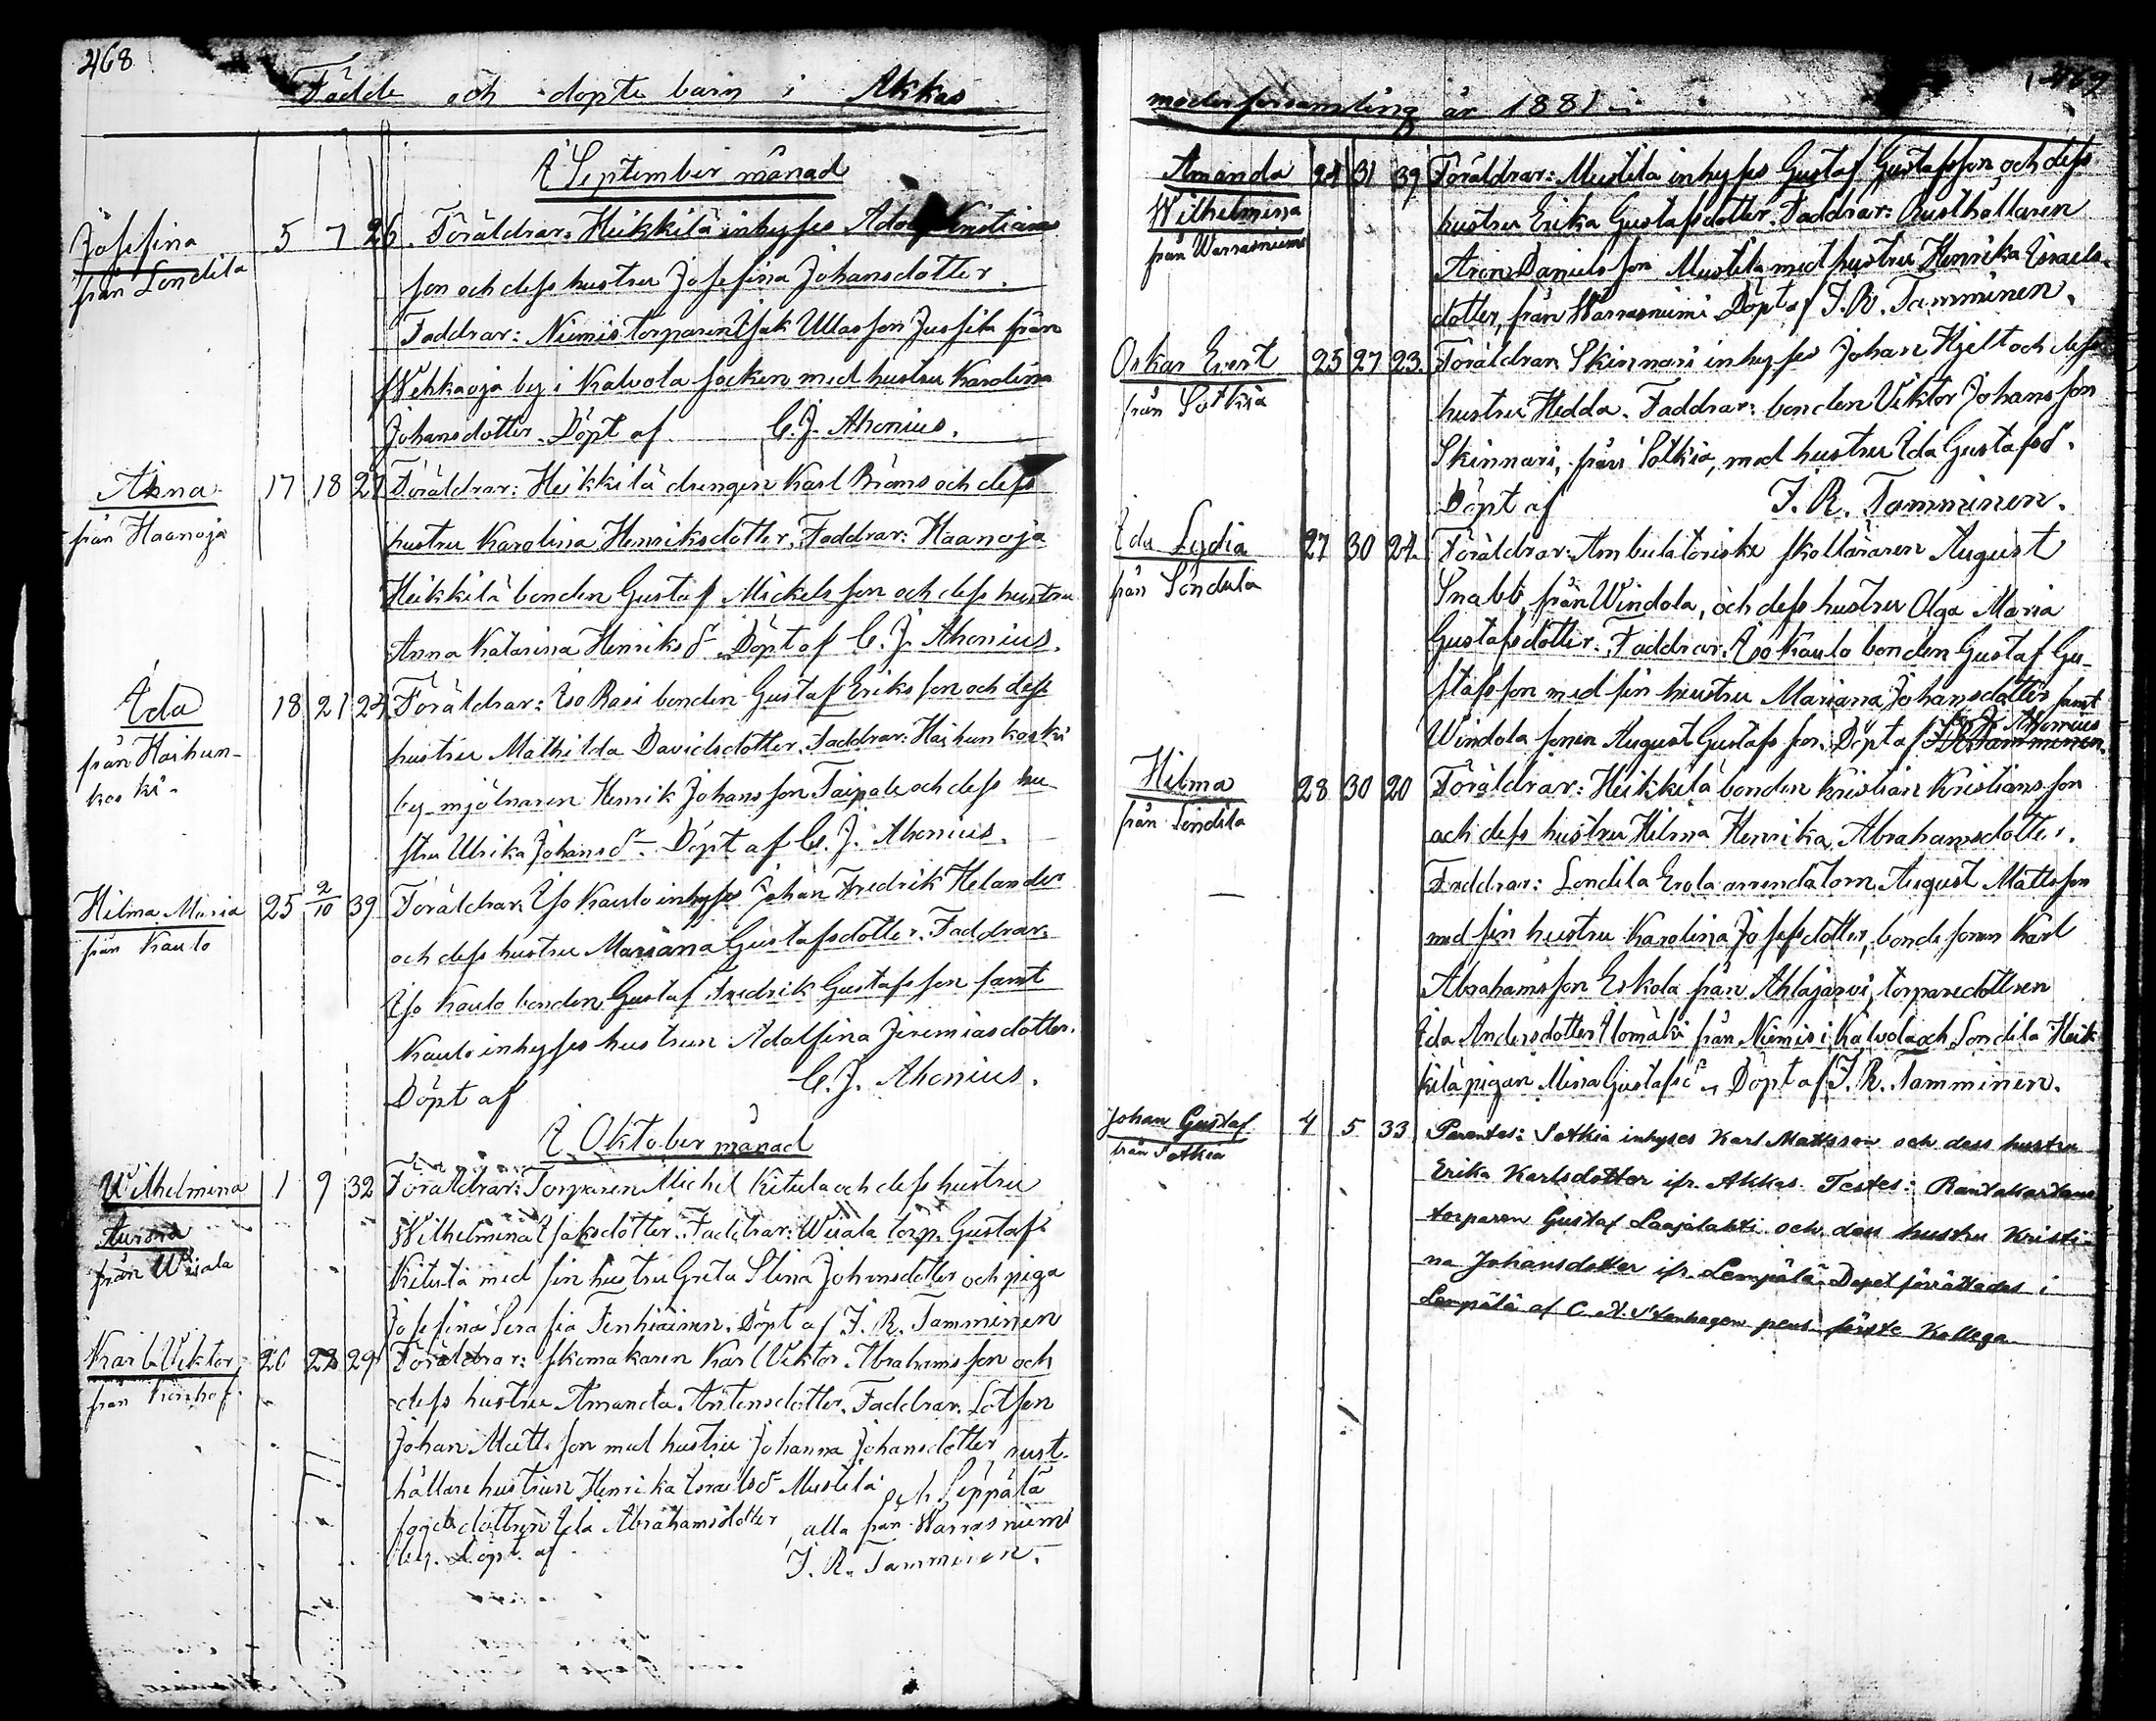 468
Födde och döpte barn i Akkas
I September månad
Josefina 5 7 26. Föräldrar: Heikkilä inhyses Adolf Kristians
från Sondila
son och dess hustru Josefina Johansdotter.
Faddrar: Niemis torparen Isak Ullasson Jussila från
Wehkaoja by i Kalvola socken med hustru Karolina
Johansdotter. Döpt af C. J. Ahonius.
Anna 17 18 27 Föräldrar: Heikkilä drengen Karl Bräms och dess
från Haanoja
hustru Karolina Henriksdotter. Faddrar: Haanoja
Heikkilä bonden Gustaf Mickelsson och dess hustru
Anna Katarina Henriksd. Döpt af C. J. Ahonius.
Ida 18 21 24 Föräldrar: Iso Rasi bonden Gustaf Eriksson och dess
från Haihun-
koski.
hustru Mathilda Davidsdotter. Faddrar: Haihunkoski
by mjölnaren Henrik Johansson Taipale och dess hu-
stru Ulrika Johansd. Döpt af C. J. Ahonius.
Hilma Maria 25 2/10 39 Föräldrar: Iso Kaulo inhyses Johan Fredrik Helander
från Kaulo
och dess hustru Mariana Gustafsdotter. Faddrar:
Iso Kaulo bonden Gustaf Fredrik Gustafsson samt
Kaulo inhyses hustrun Adolfina Jeremiasdotter.
Döpt af C. J. Ahonius.
I Oktober månad
Wilhelmina 1 9 32 Föräldrar: Torparen Michel Kitula och dess hustru
Aurora
från Wisala
Wilhelmina Isaksdotter. Faddrar: Wisala torp. Gustaf
Kitula med sin hustru Greta Stina Johansdotter och piga
Josefina Serafia Tenhiäinen. Döpt af J. R. Tamminen
Karl Viktor 20 22 29 Föräldrar: skomakaren Karl Viktor Abrahamsson och
från
dess hustru Amanda Antonsdotter. Faddrar: Lotsen
Johan Mattsson med hustru Johanna Johansdotter, rust-
hållare hustrun Henrika Israelsd. Mustila och Seppälä
dottren Ida Abrahamsdotter, alla från Warrasniemi
by. Döpt af J. R. Tamminen.
469
moderförsamling år 1881
Amanda 24 31 39 Föräldrar: Mustila inhyses Gustaf Gustafsson och dess
Wilhelmina
från Warrasniemi
hustru Erika Gustafsdotter. Faddrar: Rusthållaren
Aron Danielsson Mustila med hustru Henrika Israels-
dotter, från Warrasniemi. Döpt af J. R. Tamminen.
Oskar Evert 25 27 23. Föräldrar: Skinnari inhyses Johan Hjelt och dess
från Sotkia
hustru Hedda. Faddrar: bonden Viktor Johansson
Skinnari, från Sotkia, med hustru Ida Gustafsd.
Döpt af J. R. Tamminen.
Ida Lydia 27 30 24. Föräldrar: Ambulatoriske skolläraren August
från Sondula
Snabb, från Windola, och dess hustru Olga Maria
Gustafsdotter. Faddrar: Iso Kaulo bonden Gustaf Gu-
stafsson med sin hustru Mariana Johansdotter samt
Windola sonen August Gustafsson. Döpt af J. R. Tamminen. C. J. Ahonius
Hilma 28 30 20 Föräldrar: Heikkilä bonden Kristian Kristiansson
från Sondila
och dess hustru Hilma Henrika Abrahamsdotter.
Faddrar: Sondila Erola arrendatorn August Mattsson
med sin hustru Karolina Josefsdotter, bondesonen Karl
Abrahamsson Eskola från Ahlajärvi, torparedottren
Ida Andersdotter Ilomäki från Niemis i Kalvola och Sondila Heik-
kilä pigan Mina Gustafsd. Döpt af J. R. Tamminen.
Johan Gustaf 4 5 33 Parentes: Sotkia inhyses Karl Matsson och dess hustru
från Sotkia
Erika Karlsdotter ifr. Akkas. Testes: Rantakartano
torparen Gustaf Laajalahti och dess hustru Kristi-
na Johansdotter ifr. Lempälä. Dopet förrättades i
Lempälä af C. A. Stenhagen pens. förste Kollega